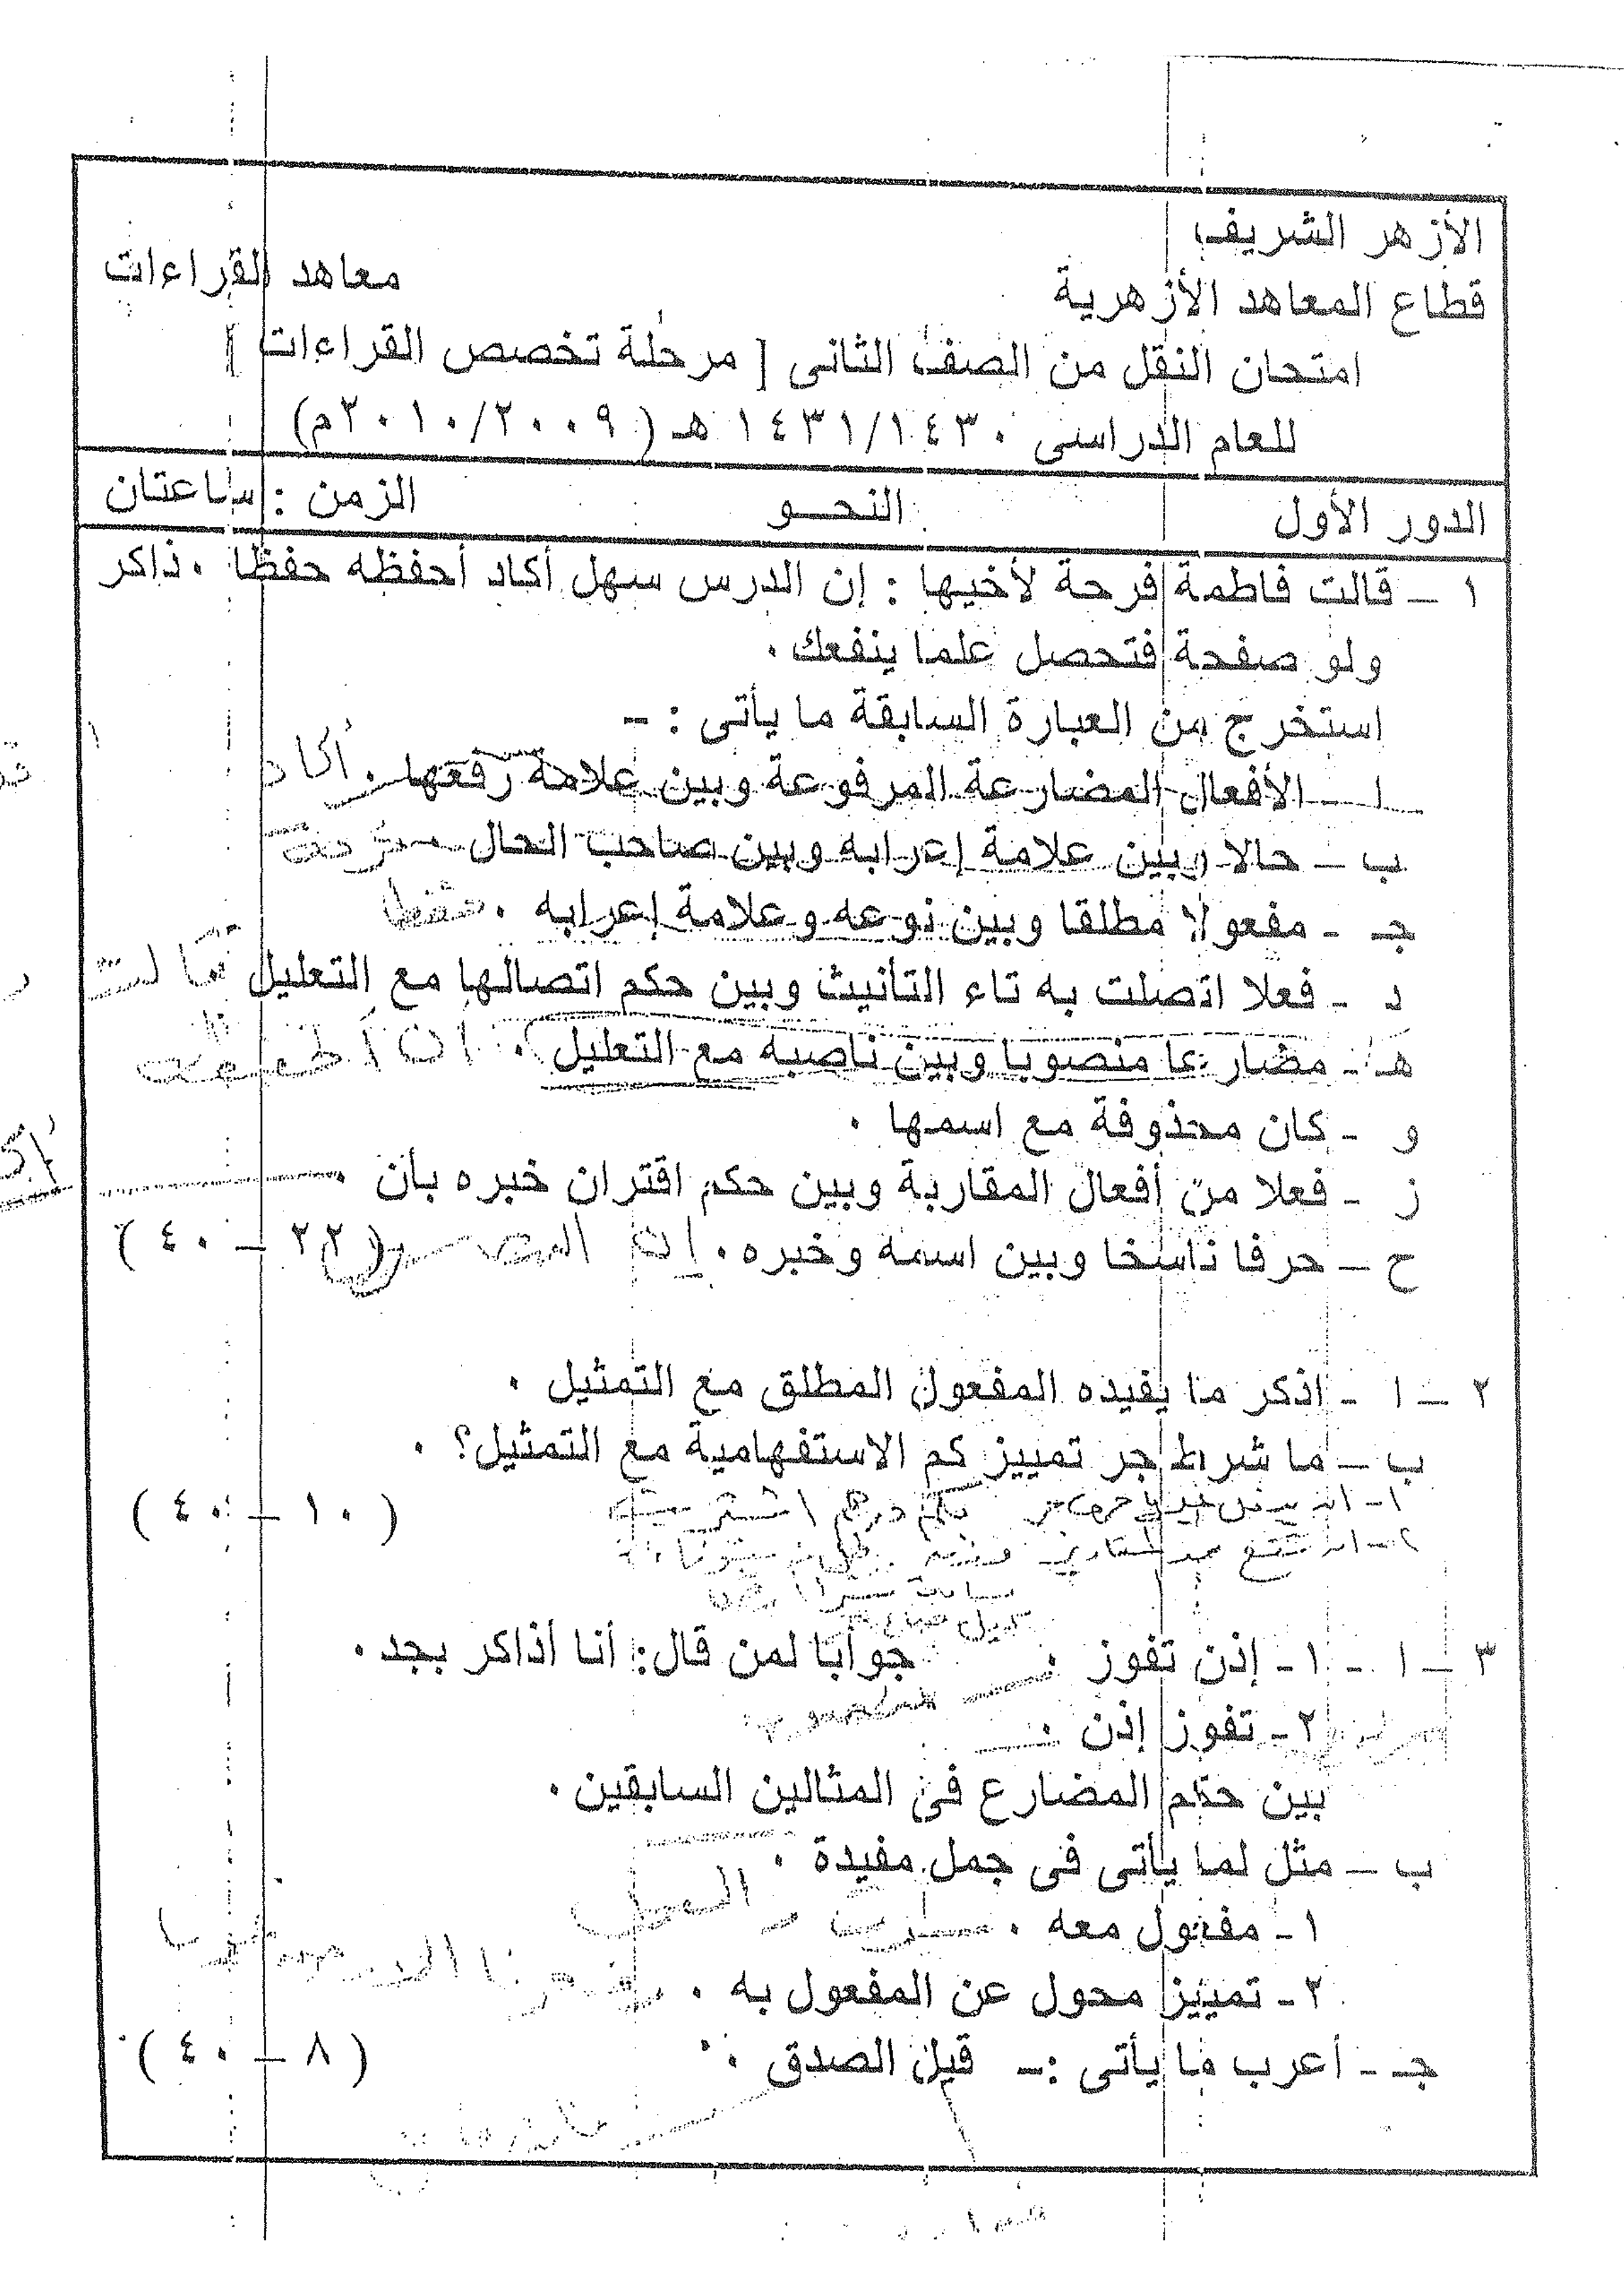 الأزهر الشريف
قطاع المعاهد الأزهرية
معاهد القراءات
امتحان النقل من الصف الثانى [ مرحلة تخصص القراءات ]
للعام الدراسى ١٤٣١/١٤٣٠ هـ ( ٢٠١٠/٢٠٠٩م)
الدور الأول النحـــو الزمن : ساعتان
١ – قالت فاطمة فرحة لأخيها : إن الدرس سهل أكاد أحفظه حفظا . ذاكر
ولو صفحة فتحصل علما ينفعك .
استخرج من العبارة السابقة ما يأتى : -
ا – الأفعال المضارعة المرفوعة وبين علامة رفعها . أكاد
ب – حالا وبين علامة إعرابه وبين صاحب الحال فرحة
جـ - مفعولا مطلقا وبين نوعه وعلامة إعرابه . حفظا
د - فعلا اتصلت به تاء التأنيث وبين حكم اتصالها مع التعليل قالت
هـ - مضارعا منصوبا وبين ناصبه مع التعليل .
و - كان محذوفة مع اسمها .
ز - فعلا من أفعال المقاربة وبين حكم اقتران خبره بأن .
ح – حرفا ناسخا وبين اسمه وخبره . إن (٢٢ – ٤٠ )
٢ – ا - اذكر ما يفيده المفعول المطلق مع التمثيل .
ب – ما شرط جر تمييز كم الاستفهامية مع التمثيل؟ .
بكم درهم اشتريت
( ١٠ – ٤٠ )
٣ – ا - ١- إذن تفوز . جوابا لمن قال: أنا أذاكر بجد .
٢- تفوز إذن .
بين حكم المضارع فى المثالين السابقين .
ب – مثل لما يأتى فى جمل مفيدة .
١- مفعول معه . سرت والنيل
٢- تمييز محول عن المفعول به .
جـ - أعرب ما يأتى :- قيل الصدق . ( ٨ – ٤٠ )